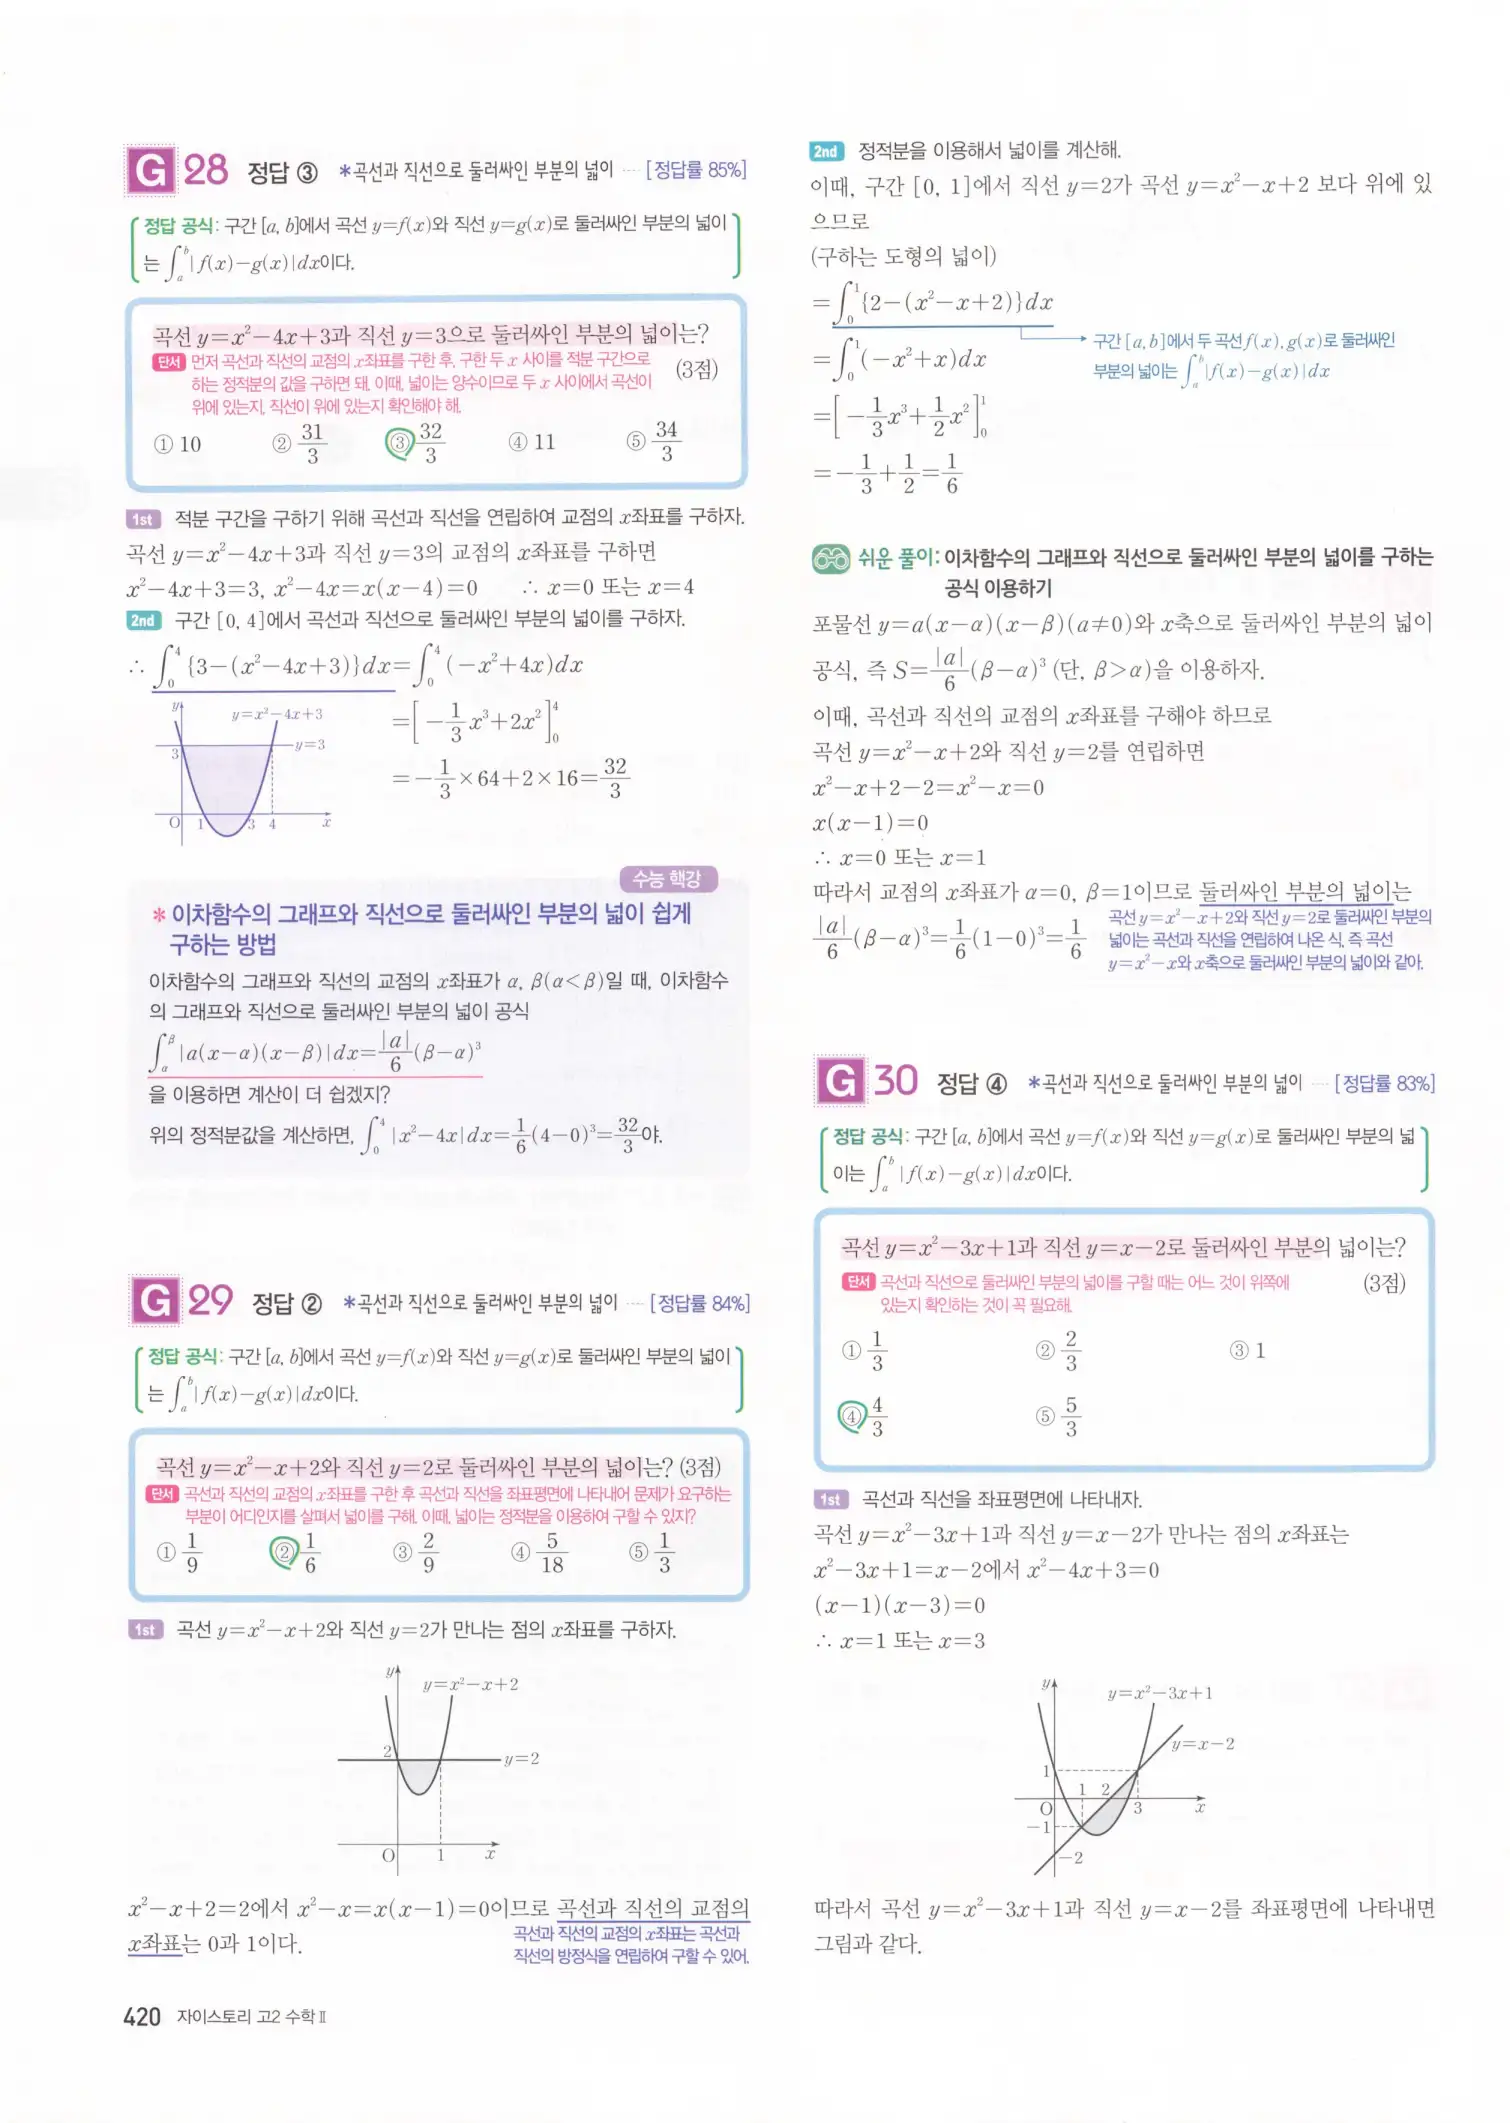 G 28 정답 ③ *곡선과 직선으로 둘러싸인 부분의 넓이 ··· [정답률 85%]
정답 공식: 구간 [a, b]에서 곡선 y=f(x)와 직선 y=g(x)로 둘러싸인 부분의 넓이
는 ∫_a^b |f(x)-g(x)|dx이다.
곡선 y=x²-4x+3과 직선 y=3으로 둘러싸인 부분의 넓이는?
단서 먼저 곡선과 직선의 교점의 x좌표를 구한 후, 구한 두 x 사이를 적분 구간으로
하는 정적분의 값을 구하면 돼. 이때, 넓이는 양수이므로 두 x 사이에서 곡선이
(3점)
위에 있는지, 직선이 위에 있는지 확인해야 해.
① 10 ② 31/3 ③ 32/3 ④ 11 ⑤ 34/3
1st 적분 구간을 구하기 위해 곡선과 직선을 연립하여 교점의 x좌표를 구하자.
곡선 y=x²-4x+3과 직선 y=3의 교점의 x좌표를 구하면
x²-4x+3=3, x²-4x=x(x-4)=0 ∴ x=0 또는 x=4
2nd 구간 [0, 4]에서 곡선과 직선으로 둘러싸인 부분의 넓이를 구하자.
∴ ∫_0^4 {3-(x²-4x+3)}dx=∫_0^4 (-x²+4x)dx
=[-1/3 x³+2x²]_0^4
=-1/3×64+2×16=32/3
y
y=x²-4x+3
3
y=3
O 1 3 4 x
수능 핵강
* 이차함수의 그래프와 직선으로 둘러싸인 부분의 넓이 쉽게
구하는 방법
이차함수의 그래프와 직선의 교점의 x좌표가 α, β(α<β)일 때, 이차함수
의 그래프와 직선으로 둘러싸인 부분의 넓이 공식
∫_α^β |a(x-α)(x-β)|dx=|a|/6(β-α)³
을 이용하면 계산이 더 쉽겠지?
위의 정적분값을 계산하면, ∫_0^4 |x²-4x|dx=1/6(4-0)³=32/3야.
G 29 정답 ② *곡선과 직선으로 둘러싸인 부분의 넓이 ··· [정답률 84%]
정답 공식: 구간 [a, b]에서 곡선 y=f(x)와 직선 y=g(x)로 둘러싸인 부분의 넓이
는 ∫_a^b |f(x)-g(x)|dx이다.
곡선 y=x²-x+2와 직선 y=2로 둘러싸인 부분의 넓이는? (3점)
단서 곡선과 직선의 교점의 x좌표를 구한 후 곡선과 직선을 좌표평면에 나타내어 문제가 요구하는
부분이 어디인지를 살펴서 넓이를 구해. 이때, 넓이는 정적분을 이용하여 구할 수 있지?
① 1/9 ② 1/6 ③ 2/9 ④ 5/18 ⑤ 1/3
1st 곡선 y=x²-x+2와 직선 y=2가 만나는 점의 x좌표를 구하자.
y
y=x²-x+2
2
y=2
O 1 x
x²-x+2=2에서 x²-x=x(x-1)=0이므로 곡선과 직선의 교점의
x좌표는 0과 1이다.
곡선과 직선의 교점의 x좌표는 곡선과
직선의 방정식을 연립하여 구할 수 있어.
420 자이스토리 고2 수학 Ⅱ
2nd 정적분을 이용해서 넓이를 계산해.
이때, 구간 [0, 1]에서 직선 y=2가 곡선 y=x²-x+2 보다 위에 있
으므로
(구하는 도형의 넓이)
=∫_0^1 {2-(x²-x+2)}dx
=∫_0^1 (-x²+x)dx
구간 [a, b]에서 두 곡선 f(x), g(x)로 둘러싸인
부분의 넓이는 ∫_a^b |f(x)-g(x)|dx
=[-1/3 x³+1/2 x²]_0^1
=-1/3+1/2=1/6
쉬운 풀이: 이차함수의 그래프와 직선으로 둘러싸인 부분의 넓이를 구하는
공식 이용하기
포물선 y=a(x-α)(x-β)(a≠0)와 x축으로 둘러싸인 부분의 넓이
공식, 즉 S=|a|/6(β-α)³ (단, β>α)을 이용하자.
이때, 곡선과 직선의 교점의 x좌표를 구해야 하므로
곡선 y=x²-x+2와 직선 y=2를 연립하면
x²-x+2-2=x²-x=0
x(x-1)=0
∴ x=0 또는 x=1
따라서 교점의 x좌표가 α=0, β=1이므로 둘러싸인 부분의 넓이는
|a|/6(β-α)³=1/6(1-0)³=1/6
곡선 y=x²-x+2와 직선 y=2로 둘러싸인 부분의
넓이는 곡선과 직선을 연립하여 나온 식, 즉 곡선
y=x²-x와 x축으로 둘러싸인 부분의 넓이와 같아.
G 30 정답 ④ *곡선과 직선으로 둘러싸인 부분의 넓이 ··· [정답률 83%]
정답 공식: 구간 [a, b]에서 곡선 y=f(x)와 직선 y=g(x)로 둘러싸인 부분의 넓
이는 ∫_a^b |f(x)-g(x)|dx이다.
곡선 y=x²-3x+1과 직선 y=x-2로 둘러싸인 부분의 넓이는?
단서 곡선과 직선으로 둘러싸인 부분의 넓이를 구할 때는 어느 것이 위쪽에
(3점)
있는지 확인하는 것이 꼭 필요해.
① 1/3 ② 2/3 ③ 1
④ 4/3 ⑤ 5/3
1st 곡선과 직선을 좌표평면에 나타내자.
곡선 y=x²-3x+1과 직선 y=x-2가 만나는 점의 x좌표는
x²-3x+1=x-2에서 x²-4x+3=0
(x-1)(x-3)=0
∴ x=1 또는 x=3
y
y=x²-3x+1
y=x-2
1
1 2
O 3 x
-1
-2
따라서 곡선 y=x²-3x+1과 직선 y=x-2를 좌표평면에 나타내면
그림과 같다.